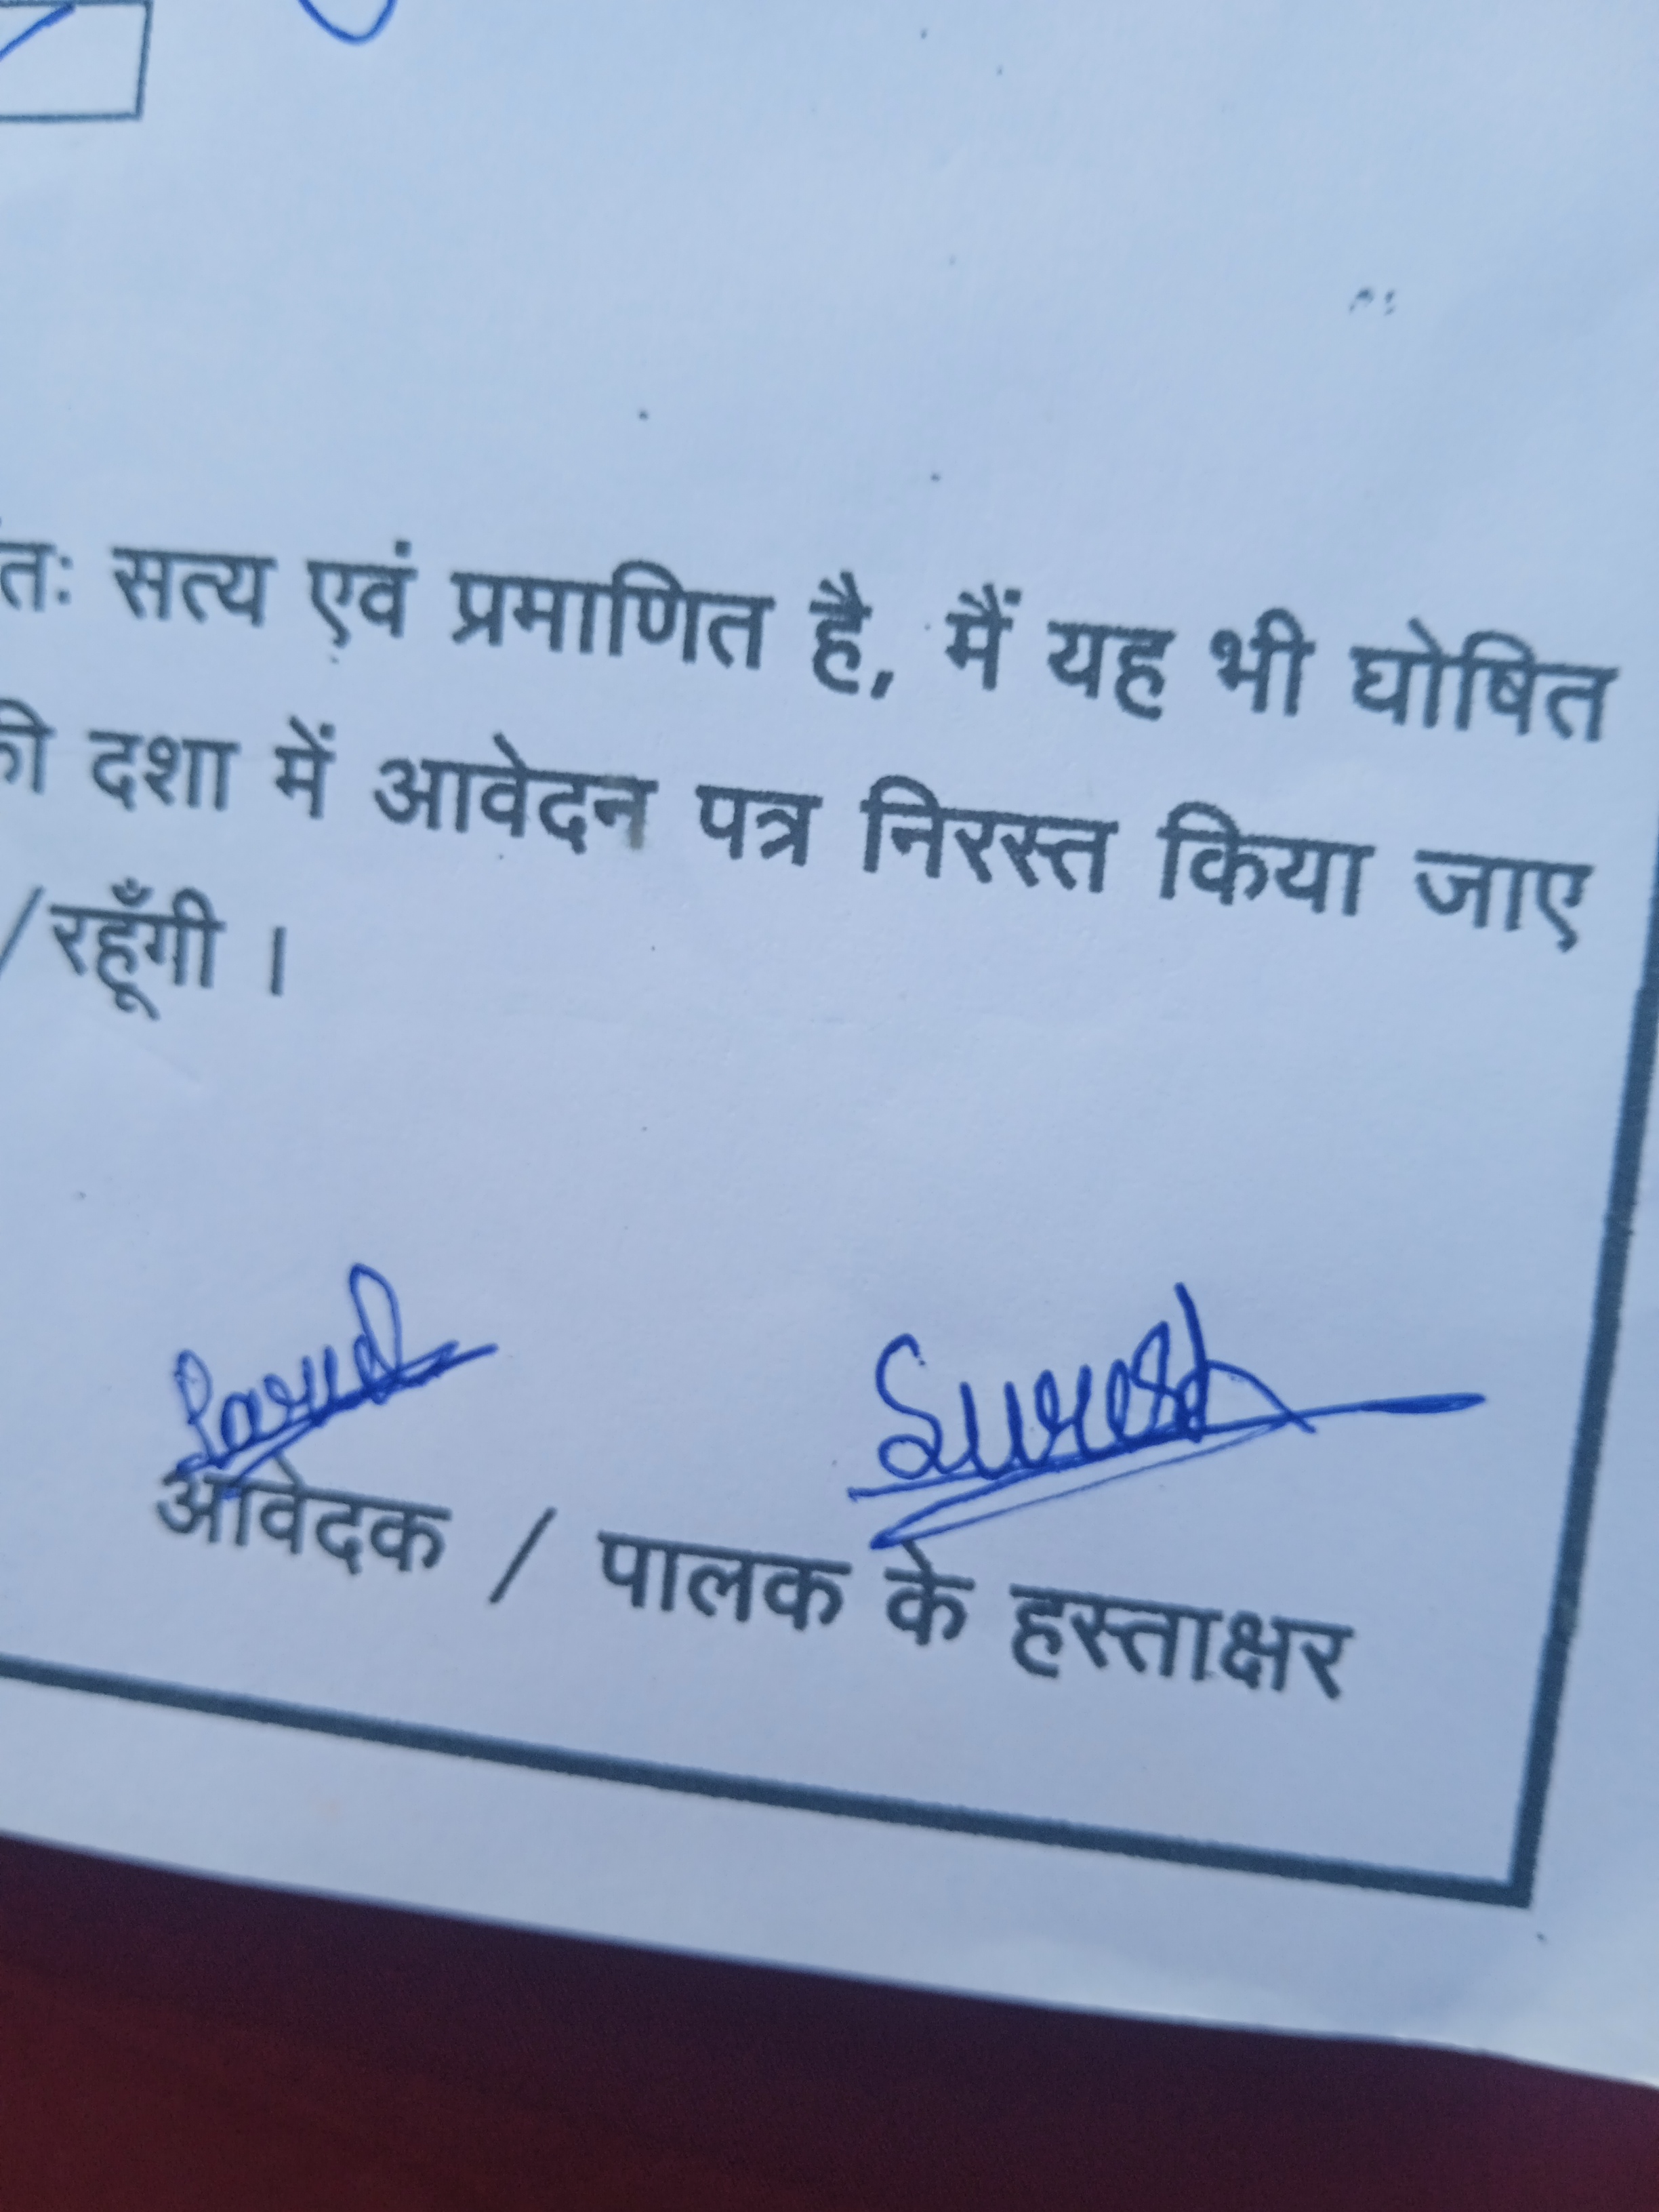 तः सत्य एवं प्रमाणित है, मैं यह भी घोषित
की दशा में आवेदन पत्र निरस्त किया जाए
/रहूँगी ।
Suresh
आवेदक / पालक के हस्ताक्षर